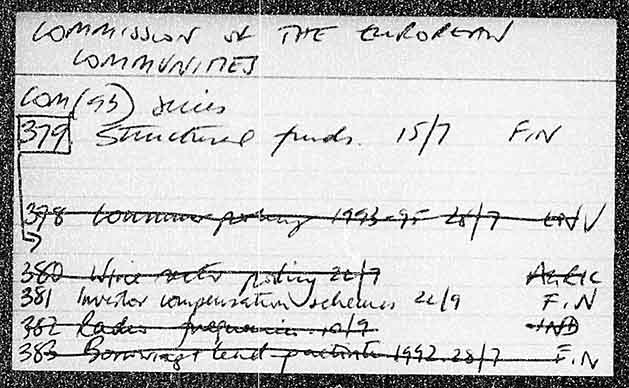 COMMISSION OF THE EUROPEAN
COMMUNITIES
COM(93) series
379 Structural funds. 15/7 FIN
378 Consumer policy 1993-95 28/7 ENV
380 Wine sector policy 22/7 AGRIC
381 Investor compensation schemes 22/9 F.N
382 Radio frequencies /9 IND
383 Borrowing + lend 1992 28/7 F.N